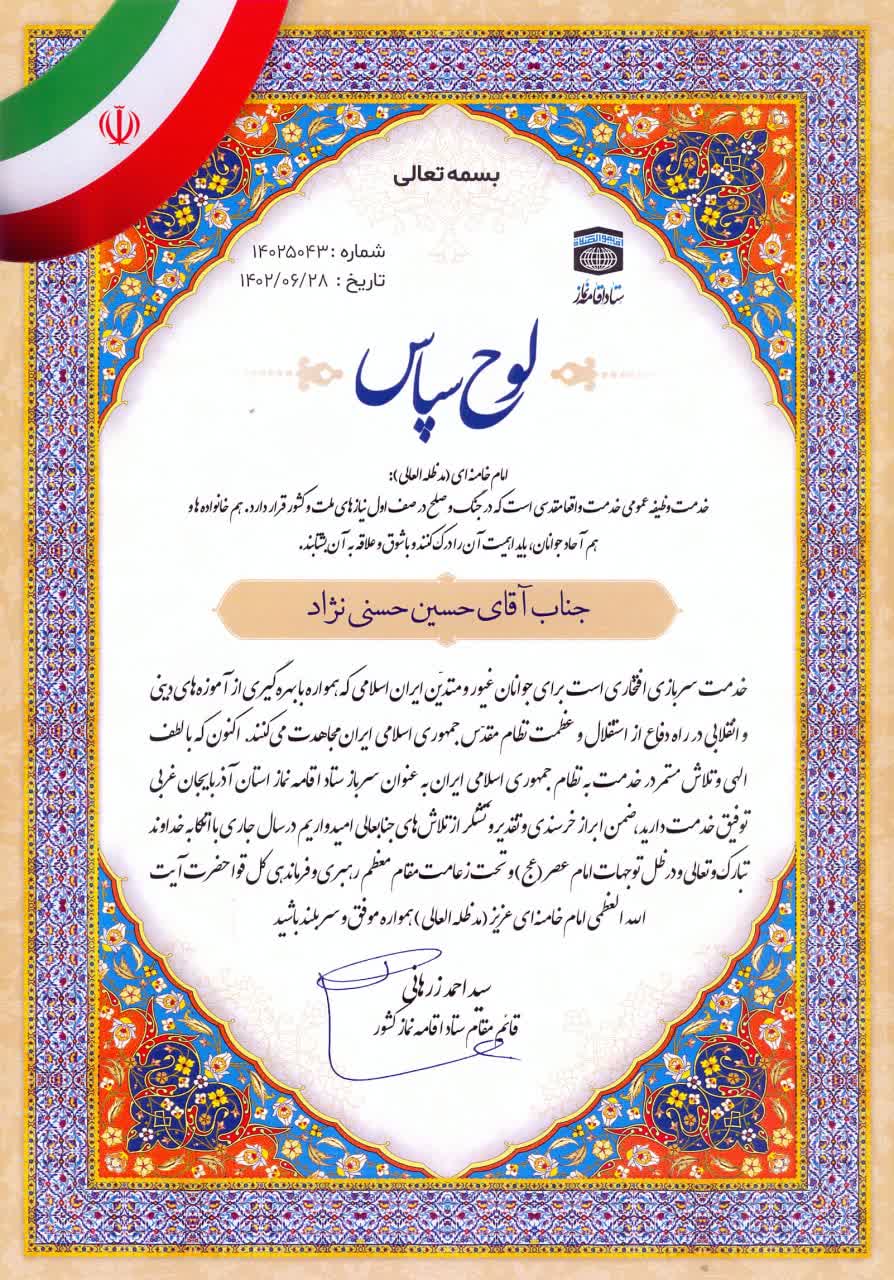 بسمه تعالی
شماره : ۱۴۰۲۵۰۴۳
تاریخ : ۱۴۰۲/۰۶/۲۸
اقیموا الصلاة
ستاد اقامه نماز
لوح سپاس
امام خامنه ای (مد ظله العالی):
خدمت وظیفه عمومی خدمت واقعا مقدسی است که در جنگ و صلح در صف اول نیازهای ملت و کشور قرار دارد. هم خانواده ها و
هم آحاد جوانان، باید اهمیت آن را درک کنند و با شوق و علاقه به آن بشتابند.
جناب آقای حسین حسنی نژاد
خدمت سربازی افتخاری است برای جوانان غیور و متدیّن ایران اسلامی که همواره با بهره گیری از آموزه های دینی
و انقلابی در راه دفاع از استقلال و عظمت نظام مقدّس جمهوری اسلامی ایران مجاهدت می کنند. اکنون که با لطف
الهی و تلاش مستمر در خدمت به نظام جمهوری اسلامی ایران به عنوان سرباز ستاد اقامه نماز استان آذربایجان غربی
توفیق خدمت دارید، ضمن ابراز خرسندی و تقدیر و تشکر از تلاش های جنابعالی امیدواریم در سال جاری با اتکا به خداوند
تبارک و تعالی و در ظل توجهات امام عصر (عج) و تحت زعامت مقام معظم رهبری و فرماندهی کل قوا حضرت آیت
الله العظمی امام خامنه ای عزیز (مد ظله العالی) همواره موفق و سربلند باشید
سید احمد زرهانی
قائم مقام ستاد اقامه نماز کشور